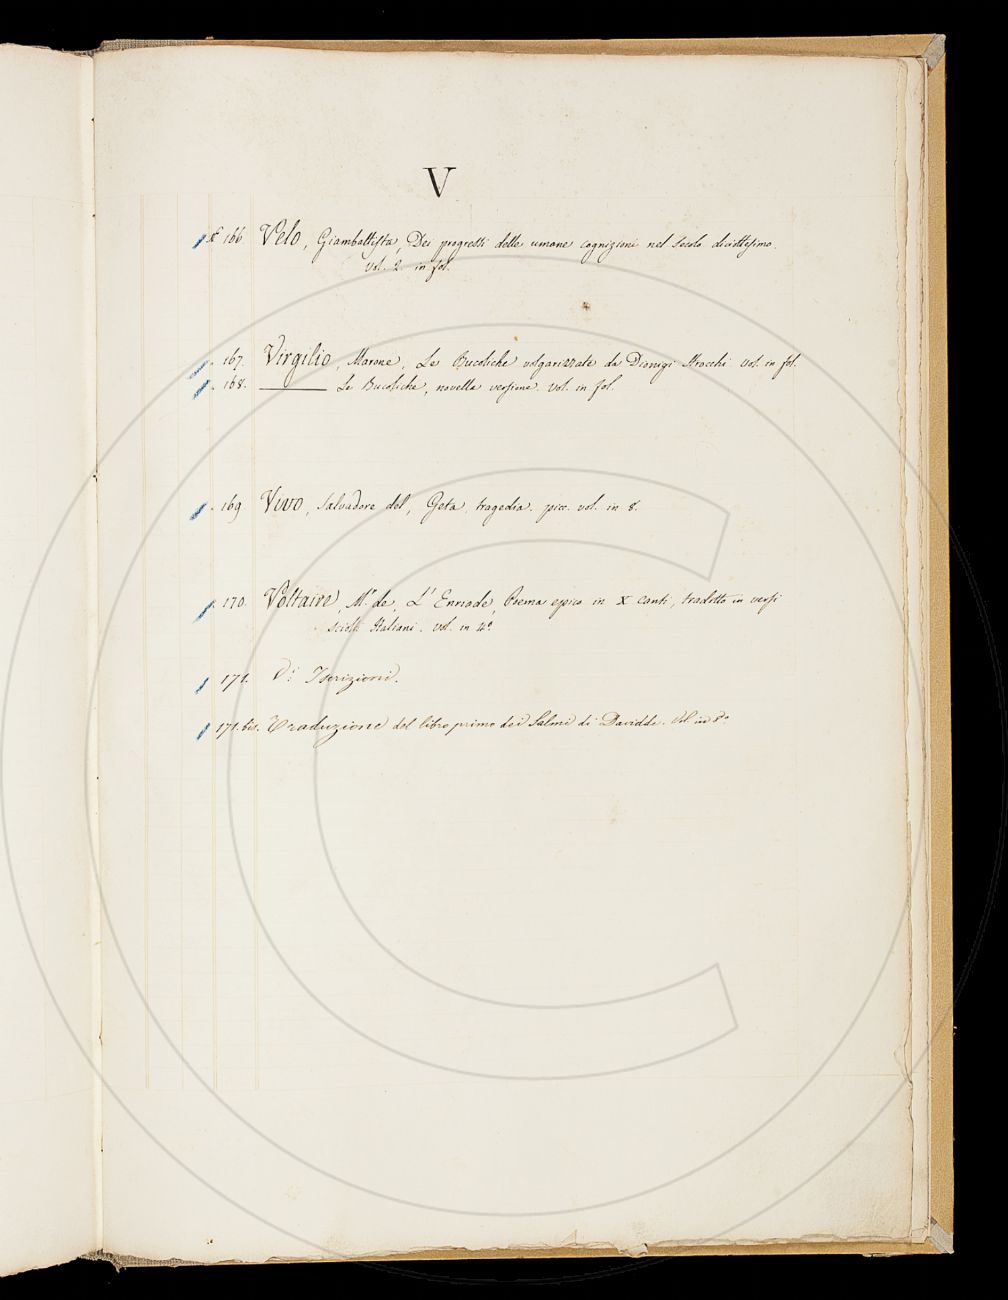 V
166. Velo, Giambattista, Dei progressi delle umane cognizioni nel Secolo diciottesimo.
vol. 2. in fol.
167. Virgilio, Marone, Le Bucoliche volgarizzate da Dionigi Strocchi vol. in fol.
168. ——— Le Bucoliche, novella versione. vol. in fol.
169 Vivo, Salvadore del, Geta, tragedia. picc. vol. in 8.
170. Voltaire, Mr. de, L'Enriade, Poema epico in X canti, tradotto in versi
sciolti Italiani. vol. in 4o.
171. Iscrizioni.
171.bis. Traduzione del libro primo dei Salmi di Davidde. Vol. in 8o